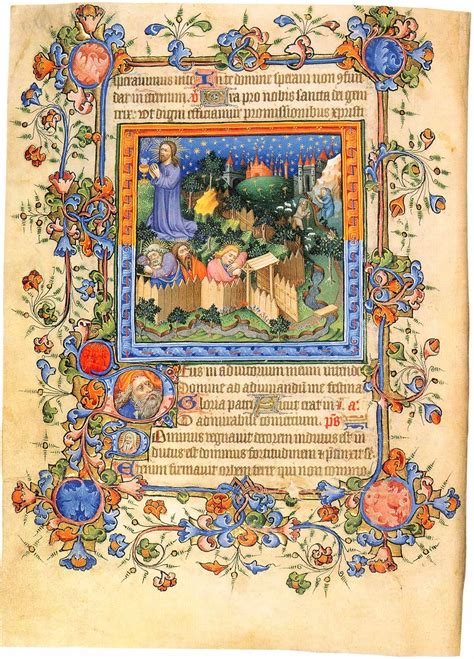 sperauimus in te In te domine speraui non
dar in eternum v Ora pro nobis sancta dei geni
trix ut digni efficiamur promissionibus xpisti
Deus in adiutorium meum intende
Domine ad adiuuandum me festina
Gloria patri Sicut erat in
O admirabile comercium ps
Dominus regnauit decorem indutus est in
dutus est dominus fortitudinem et precinxit se
Etenim firmauit orbem terre qui non commo